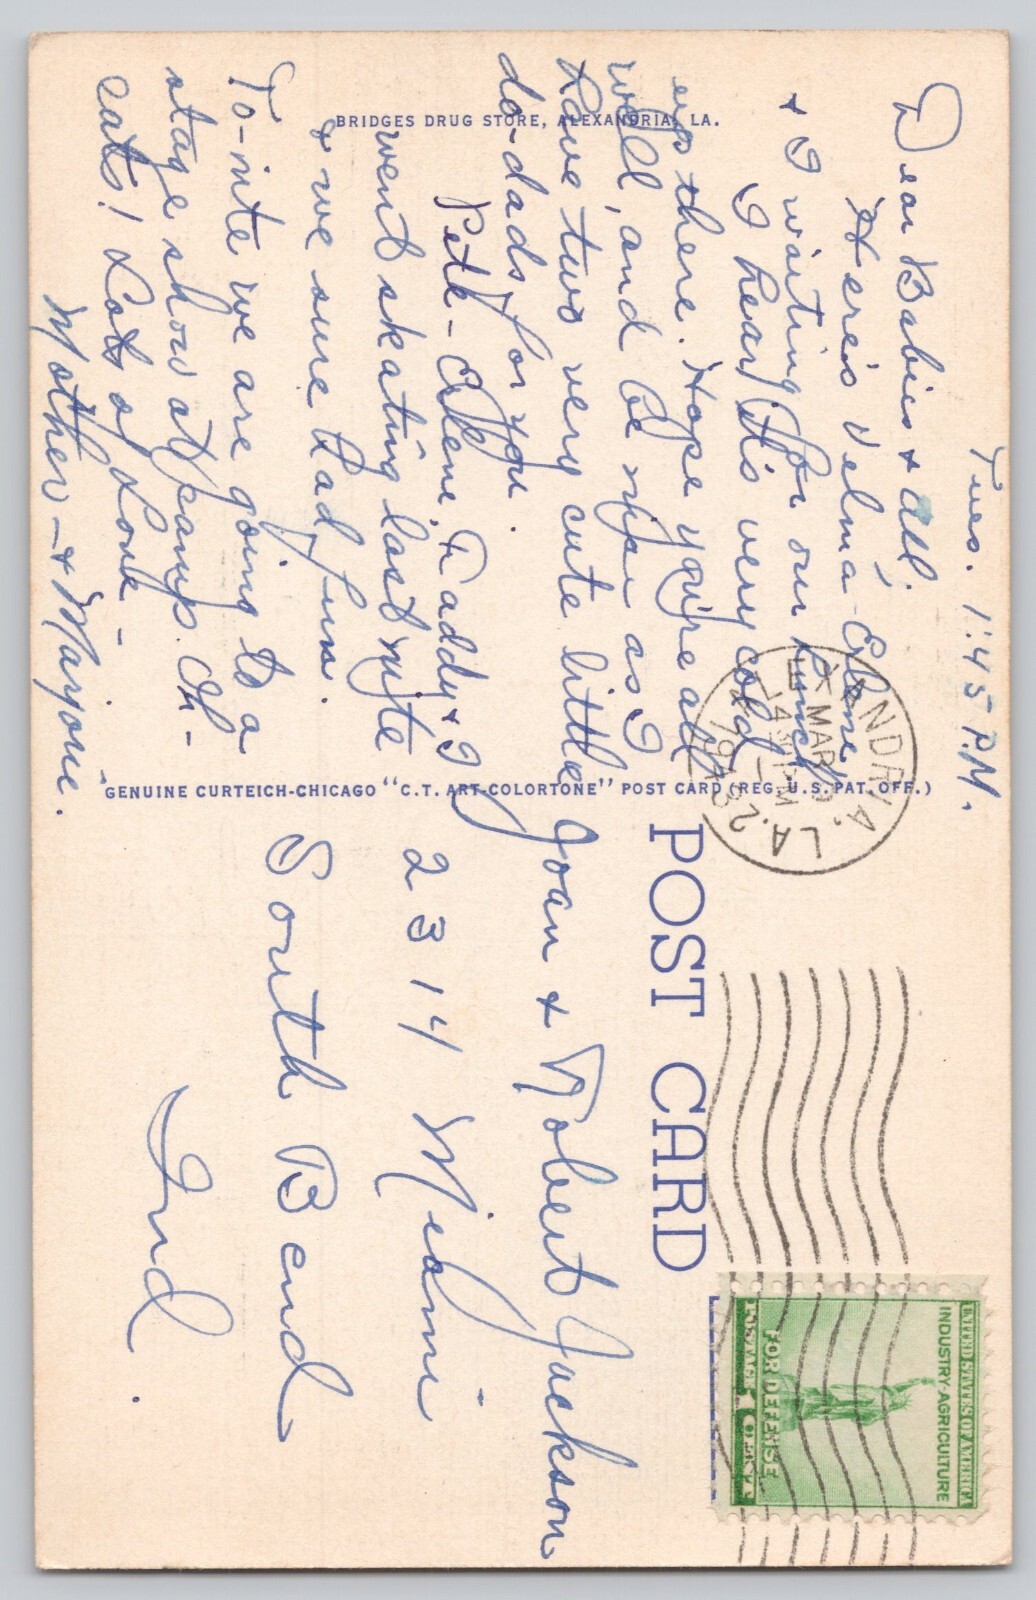 Tues. 1:45 P.M.
Dear Babies & all:
Here's Velma, Erlene
& I waiting for our lunch
I hear it's very cold
up there. Hope you're all
well, and be nyse as I
have two very cute little
do-dads for you.
Pete - Erlene, Faddy & I
went skating last nyte
& we sure had fun.
To-nite we are going to a
stage show at camp. Oh -
cats! Lots of Love -
Mother - & Marjorie.
BRIDGES DRUG STORE, ALEXANDRIA, LA.
GENUINE CURTEICH-CHICAGO "C.T. ART-COLORTONE" POST CARD (REG. U.S. PAT. OFF.)
POST CARD
ALEXANDRIA, LA. 2
MAR
430 PM
1943
UNITED STATES OF AMERICA
INDUSTRY-AGRICULTURE
FOR DEFENSE
POSTAGE 1 CENT
Joan & Robert Jackson
2314 Miami
South Bend
Ind.